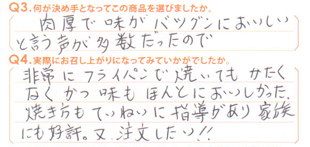 Q3.何が決め手となってこの商品を選びましたか。
肉厚で味がバツグンにおいしい
と言う声が多数だったので
Q4.実際にお召し上がりになってみていかがでしたか。
非常にフライパンで焼いても かたく
なく かつ味も ほんとにおいしかった。
焼き方も ていねいに指導があり 家族
にも好評。又、注文したい!!